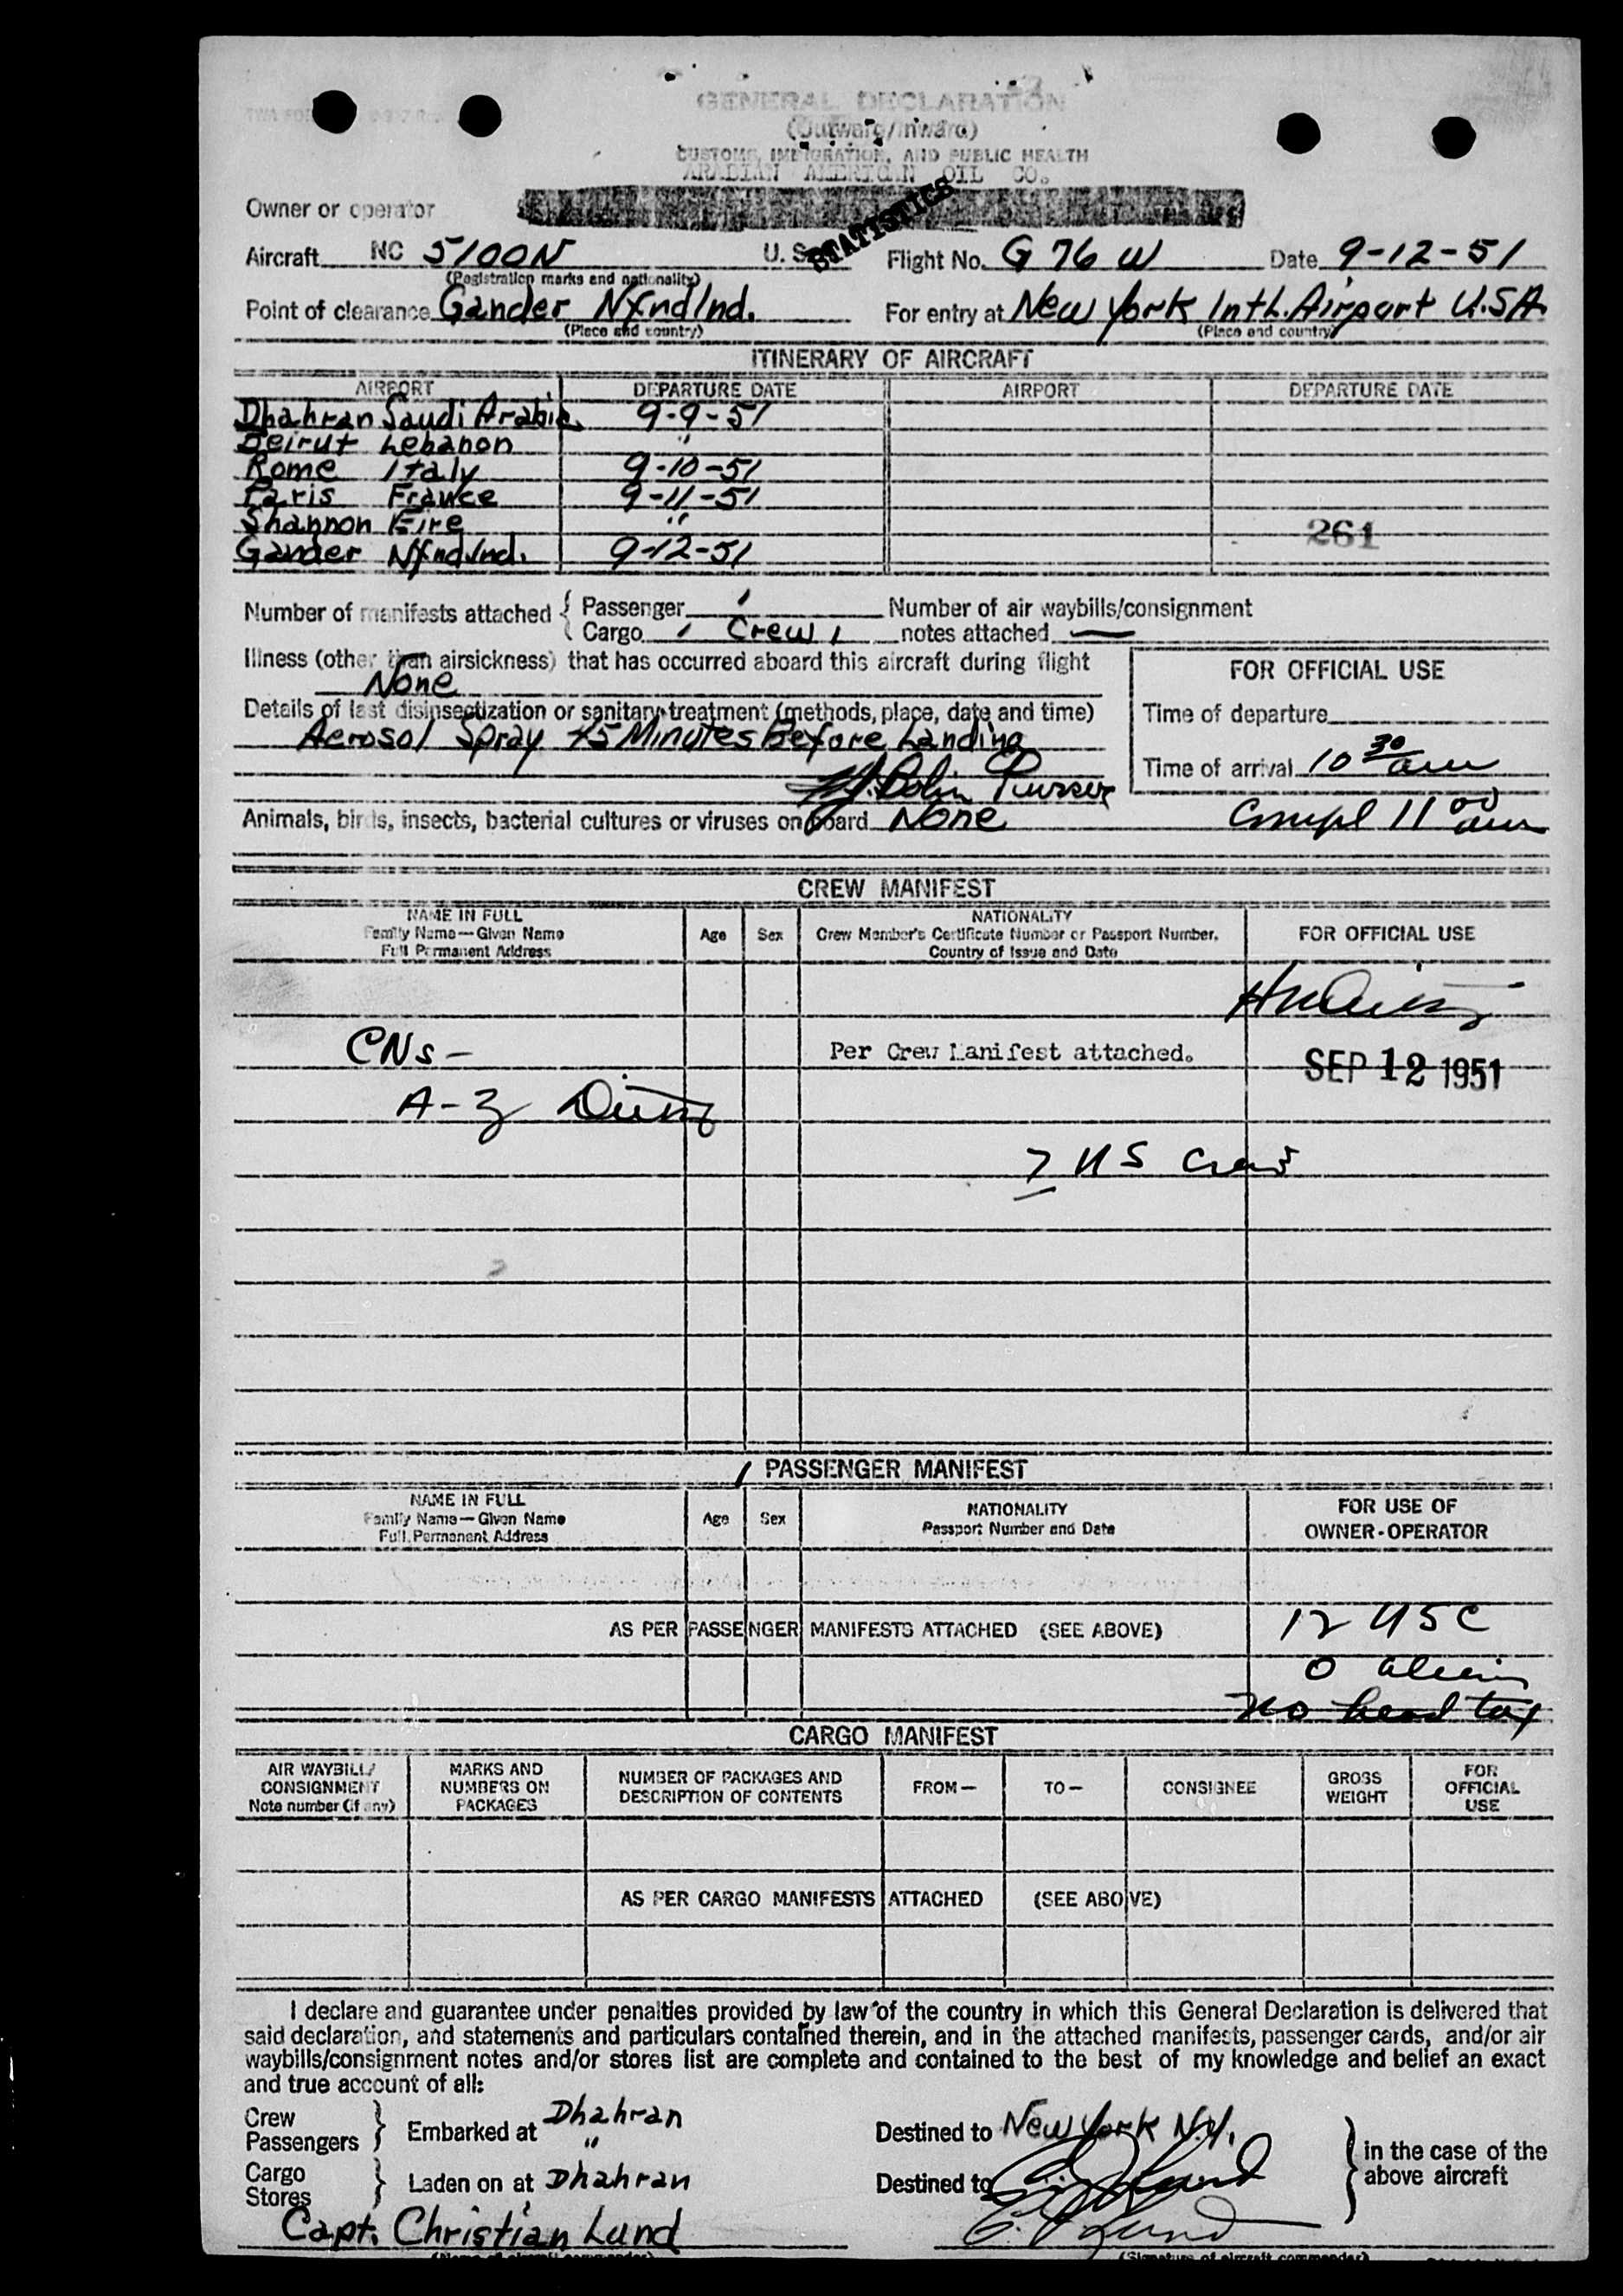 GENERAL DECLARATION
(Outward/Inward)
CUSTOMS, IMMIGRATION, AND PUBLIC HEALTH
ARABIAN AMERICAN OIL CO.
Owner or operator
STATISTICS
Aircraft NC 5100N U.S. Flight No. G 76 W Date 9-12-51
(Registration marks and nationality)
Point of clearance Gander Nfndlnd. For entry at New York Intl. Airport U.S.A.
(Place and country) (Place and country)
ITINERARY OF AIRCRAFT
AIRPORT DEPARTURE DATE AIRPORT DEPARTURE DATE
Dhahran Saudi Arabia 9-9-51
Beirut Lebanon "
Rome Italy 9-10-51
Paris France 9-11-51
Shannon Eire "
261
Gander Nfndlnd. 9-12-51
Number of manifests attached { Passenger 1 Number of air waybills/consignment
Cargo 1 Crew 1 notes attached —
Illness (other than airsickness) that has occurred aboard this aircraft during flight
None
FOR OFFICIAL USE
Details of last disinsectization or sanitary treatment (methods, place, date and time)
Time of departure
Aerosol Spray 45 Minutes Before Landing
Time of arrival 10 30 am
Purser
Animals, birds, insects, bacterial cultures or viruses on board None
Compl 11 00 am
CREW MANIFEST
NAME IN FULL
Family Name—Given Name
Full Permanent Address
Age Sex
NATIONALITY
Crew Member's Certificate Number or Passport Number,
Country of Issue and Date
FOR OFFICIAL USE
CNs – Per Crew Manifest attached.
SEP 12 1951
A-Z
7 US Crew
PASSENGER MANIFEST
NAME IN FULL
Family Name—Given Name
Full Permanent Address
Age Sex
NATIONALITY
Passport Number and Date
FOR USE OF
OWNER-OPERATOR
AS PER PASSENGER MANIFESTS ATTACHED (SEE ABOVE)
12 USC
0 alien
no head tax
CARGO MANIFEST
AIR WAYBILL/
CONSIGNMENT
Note number (if any)
MARKS AND
NUMBERS ON
PACKAGES
NUMBER OF PACKAGES AND
DESCRIPTION OF CONTENTS
FROM— TO— CONSIGNEE
GROSS
WEIGHT
FOR
OFFICIAL
USE
AS PER CARGO MANIFESTS ATTACHED (SEE ABOVE)
I declare and guarantee under penalties provided by law of the country in which this General Declaration is delivered that
said declaration, and statements and particulars contained therein, and in the attached manifests, passenger cards, and/or air
waybills/consignment notes and/or stores list are complete and contained to the best of my knowledge and belief an exact
and true account of all:
Crew
Passengers } Embarked at Dhahran
"
Destined to New York N.Y.
Cargo
Stores } Laden on at Dhahran
Destined to
} in the case of the
above aircraft
Capt. Christian Lund
C. Lund
(Name of aircraft commander) (Signature of aircraft commander)